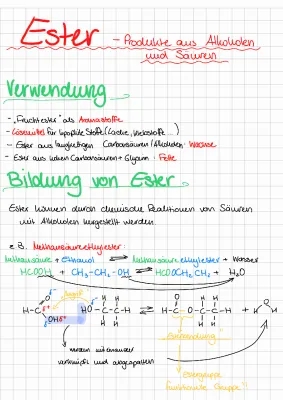 Ester - Produkte aus Alkoholen
und Säuren
Verwendung
- "Fruchtester" als Aromastoffe
- Lösemittel für lipophile Stoffe (Lacke, Klebstoffe ...)
- Ester aus langkettigen Carbonsäuren/Alkoholen: Wachse
- Ester aus hohen Carbonsäuren + Glycerin: Fette
Bildung von Ester
Ester können durch chemische Reaktionen von Säuren
mit Alkoholen hergestellt werden.
z.B. Methansäureethylester:
Methansäure + Ethanol ⇌ Methansäureethylester + Wasser
HCOOH + CH₃-CH₂-OH ⇌ HCOOCH₂CH₃ + H₂O
Angriff
H H H H
H-C O δ- OH δ+ HO-C-C-H ⇌ H-C-O-C-C-H + H O H
H H O H H
werden miteinander
verknüpft und abgespalten
Esterbindung
Estergruppe
(funktionelle Gruppe!!)